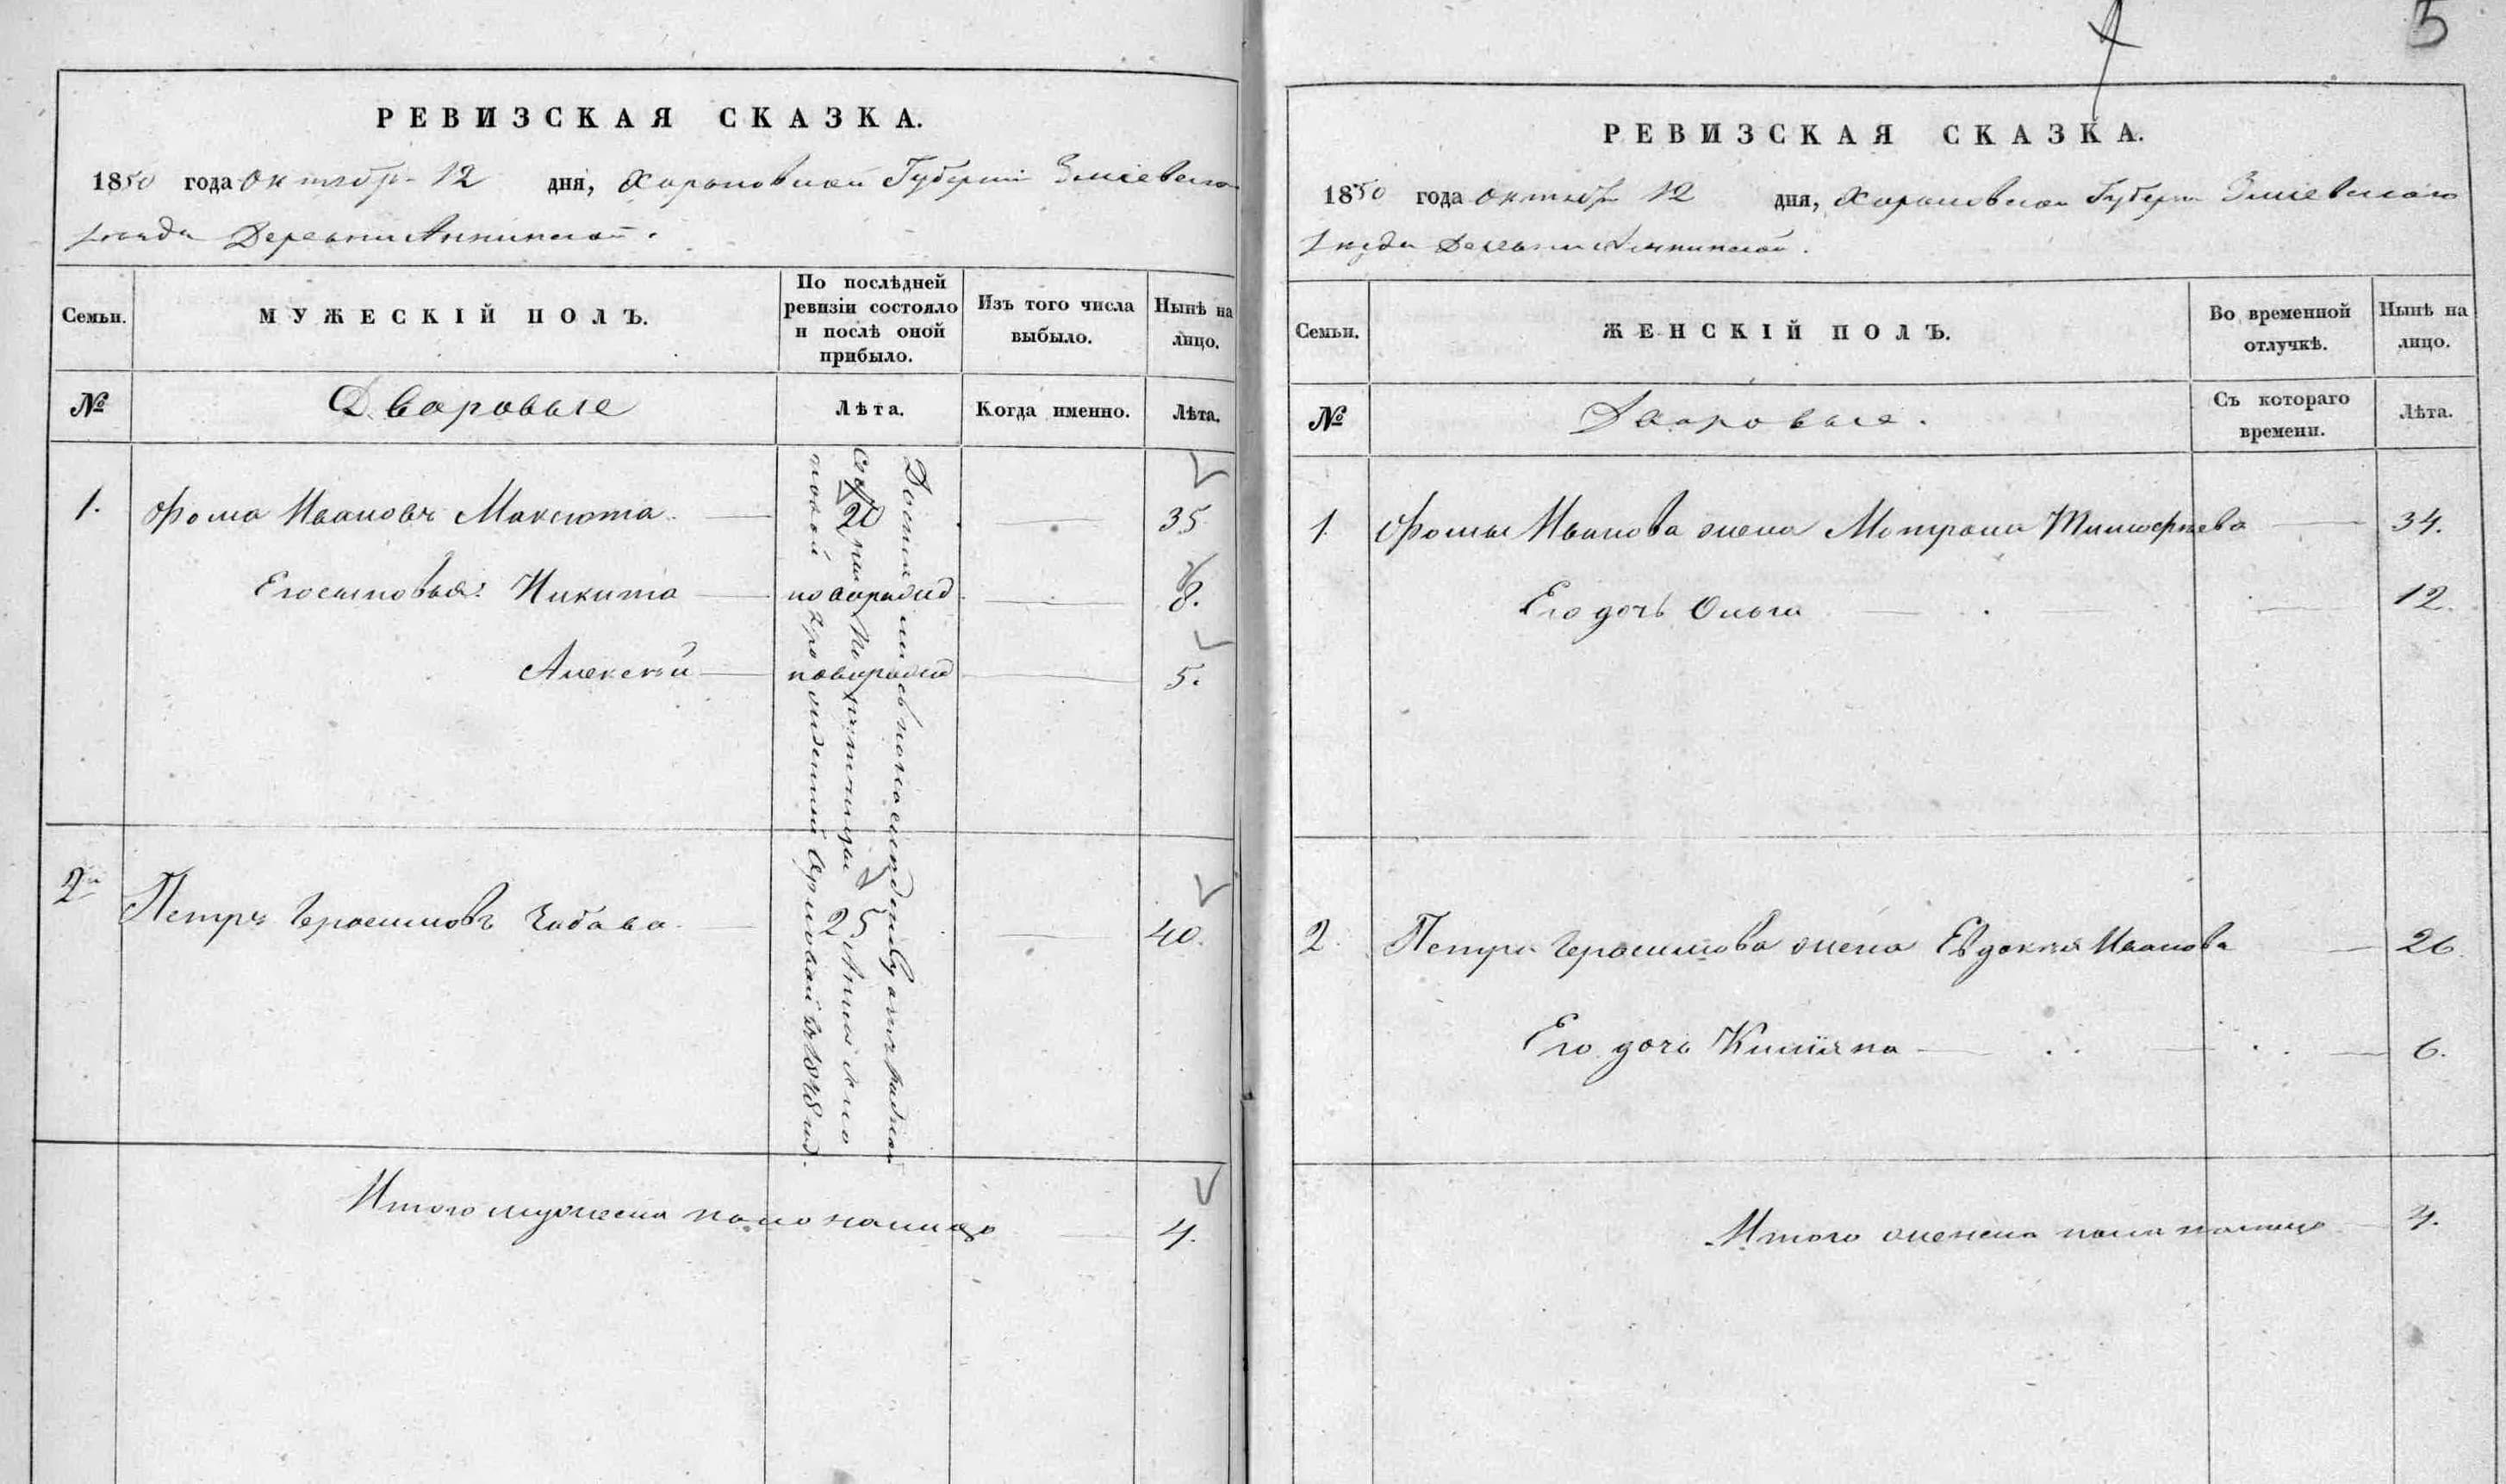 5
РЕВИЗСКАЯ СКАЗКА.
1850 года октября 12 дня, Харьковской Губерніи Зміевскаго
уезда Деревни Аннинской.
Семьи. МУЖЕСКІЙ ПОЛЪ. По послѣдней ревизіи состояло и послѣ оной прибыло. Изъ того числа выбыло. Нынѣ на лицо.
№ Дворовые Лѣта. Когда именно. Лѣта.
1. Фома Ивановъ Максюта 20 35
Его сыновья: Никита новорожд 8.
Алексѣй новорожд 5.
2й Петръ Герасимовъ Чабава 25 40.
Достались помещице
по Аннѣ
1848 год.
Итого мужеска пола налицо 4.
РЕВИЗСКАЯ СКАЗКА.
1850 года октября 12 дня, Харьковской Губерніи Зміевскаго
уезда Деревни Аннинской.
Семьи. ЖЕНСКІЙ ПОЛЪ. Во временной отлучкѣ. Нынѣ на лицо.
№ Дворовые. Съ котораго времени. Лѣта.
1 Фомы Иванова жена Мотрона Тимофѣева 34.
Его дочь Ольга 12.
2. Петра Герасимова жена Евдокия Иванова 26.
Его дочь Килияна 6.
Итого женска пола налицо 4.